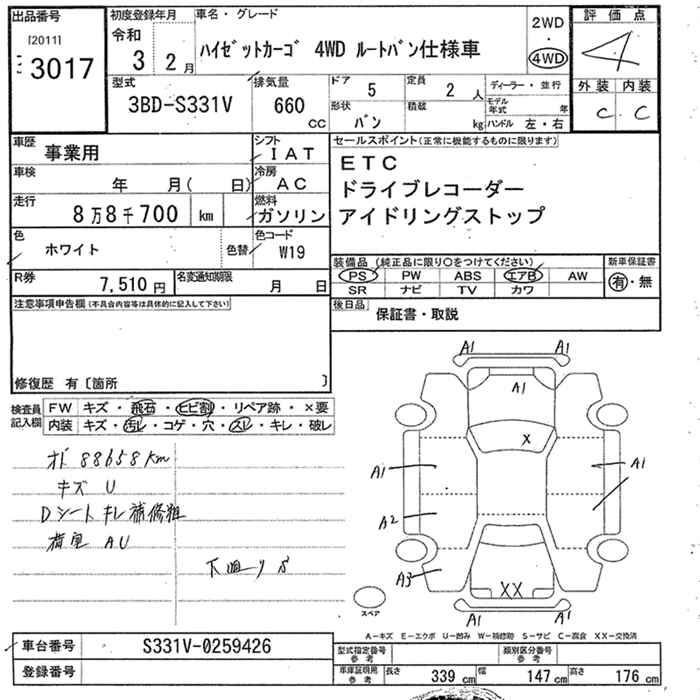 出品番号
[2011]
3017
初度登録年月
令和
3 2月
車名・グレード
ハイゼットカーゴ 4WD ルートバン仕様車
2WD
・
4WD
評価点
4
外装 内装
C C
型式
3BD-S331V
排気量
660
CC
ドア
5
定員
2 人
形状
バン
積載
kg
ディーラー・並行
モデル年式 年
ハンドル 左・右
車歴
事業用
シフト
IAT
車検
年 月( 日)
冷房
AC
走行
8万8千700 km
燃料
ガソリン
色
ホワイト
色替
色コード
W19
R券
7,510円
名変通知期限
月 日
セールスポイント(正常に機能するものに限ります)
ETC
ドライブレコーダー
アイドリングストップ
装備品 (純正品に限り○をつけてください)
PS PW ABS エアB AW
SR ナビ TV カワ
新車保証書
有・無
後日品
保証書・取説
注意事項申告欄(不具合内容等は具体的に記入して下さい)
修復歴 有〔箇所 〕
検査員記入欄
FW キズ・飛石・ヒビ割・リペア跡・×要
内装 キズ・汚レ・コゲ・穴・スレ・キレ・破レ
オド 88658km
キズ U
Dシート キレ補修粗
荷室 AU
下回りS
A1 A1
A1
X
A1 A1
A2
A3
XX
A1 A1
スペア
A-キズ E-エクボ U-凹み W-補修跡 S-サビ C-腐食 XX-交換済
車台番号
S331V-0259426
登録番号
型式指定番号参考
類別区分番号参考
車庫証明用参考
長さ 339 cm 幅 147 cm 高さ 176 cm